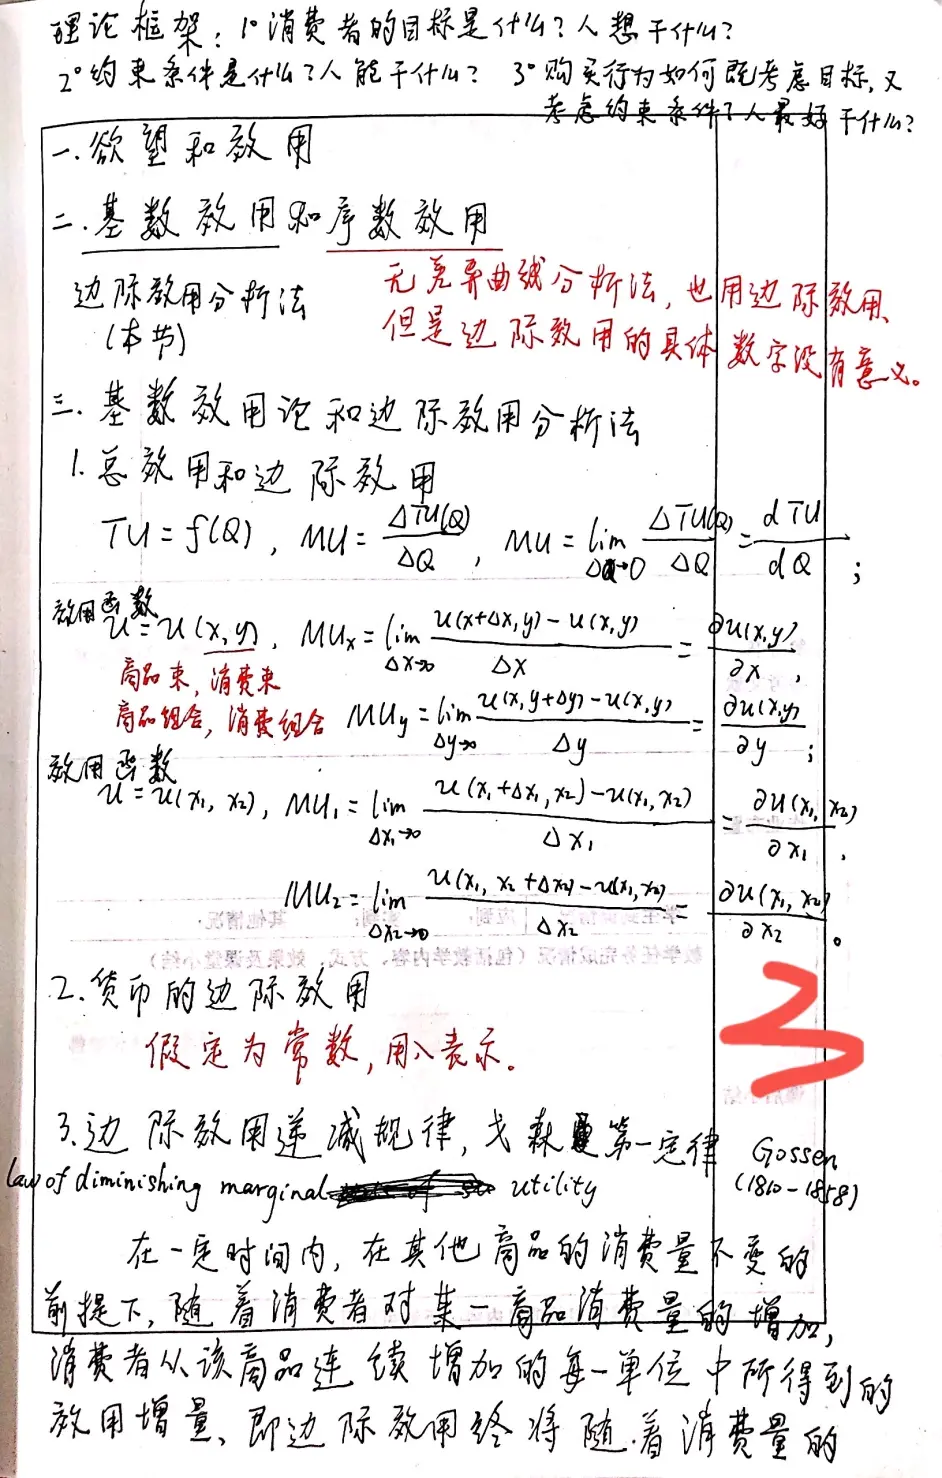 理论框架：1°消费者的目标是什么？人想干什么？
2°约束条件是什么？人能干什么？ 3°购买行为如何既考虑目标，又
考虑约束条件？人最好干什么？
一.欲望和效用
二.基数效用和序数效用
边际效用分析法
(本节)
无差异曲线分析法，也用边际效用，
但是边际效用的具体数字没有意义。
三.基数效用论和边际效用分析法
1.总效用和边际效用
TU = f(Q), MU = ΔTU(Q)/ΔQ, MU = lim ΔQ→0 ΔTU(Q)/ΔQ = dTU/dQ ;
效用函数
u = u(x,y), MUx = lim Δx→0 (u(x+Δx,y)-u(x,y))/Δx = ∂u(x,y)/∂x ,
商品束，消费束
商品组合，消费组合 MUy = lim Δy→0 (u(x,y+Δy)-u(x,y))/Δy = ∂u(x,y)/∂y ;
效用函数
u = u(x₁, x₂), MU₁ = lim Δx₁→0 (u(x₁+Δx₁, x₂)-u(x₁, x₂))/Δx₁ = ∂u(x₁, x₂)/∂x₁ ,
MU₂ = lim Δx₂→0 (u(x₁, x₂+Δx₂)-u(x₁, x₂))/Δx₂ = ∂u(x₁, x₂)/∂x₂ 。
2.货币的边际效用
假定为常数，用λ表示。
3.边际效用递减规律，戈森第一定律 Gossen
law of diminishing marginal utility (1810-1858)
在一定时间内，在其他商品的消费量不变的
前提下，随着消费者对某一商品消费量的增加，
消费者从该商品连续增加的每一单位中所得到的
效用增量，即边际效用终将随着消费量的